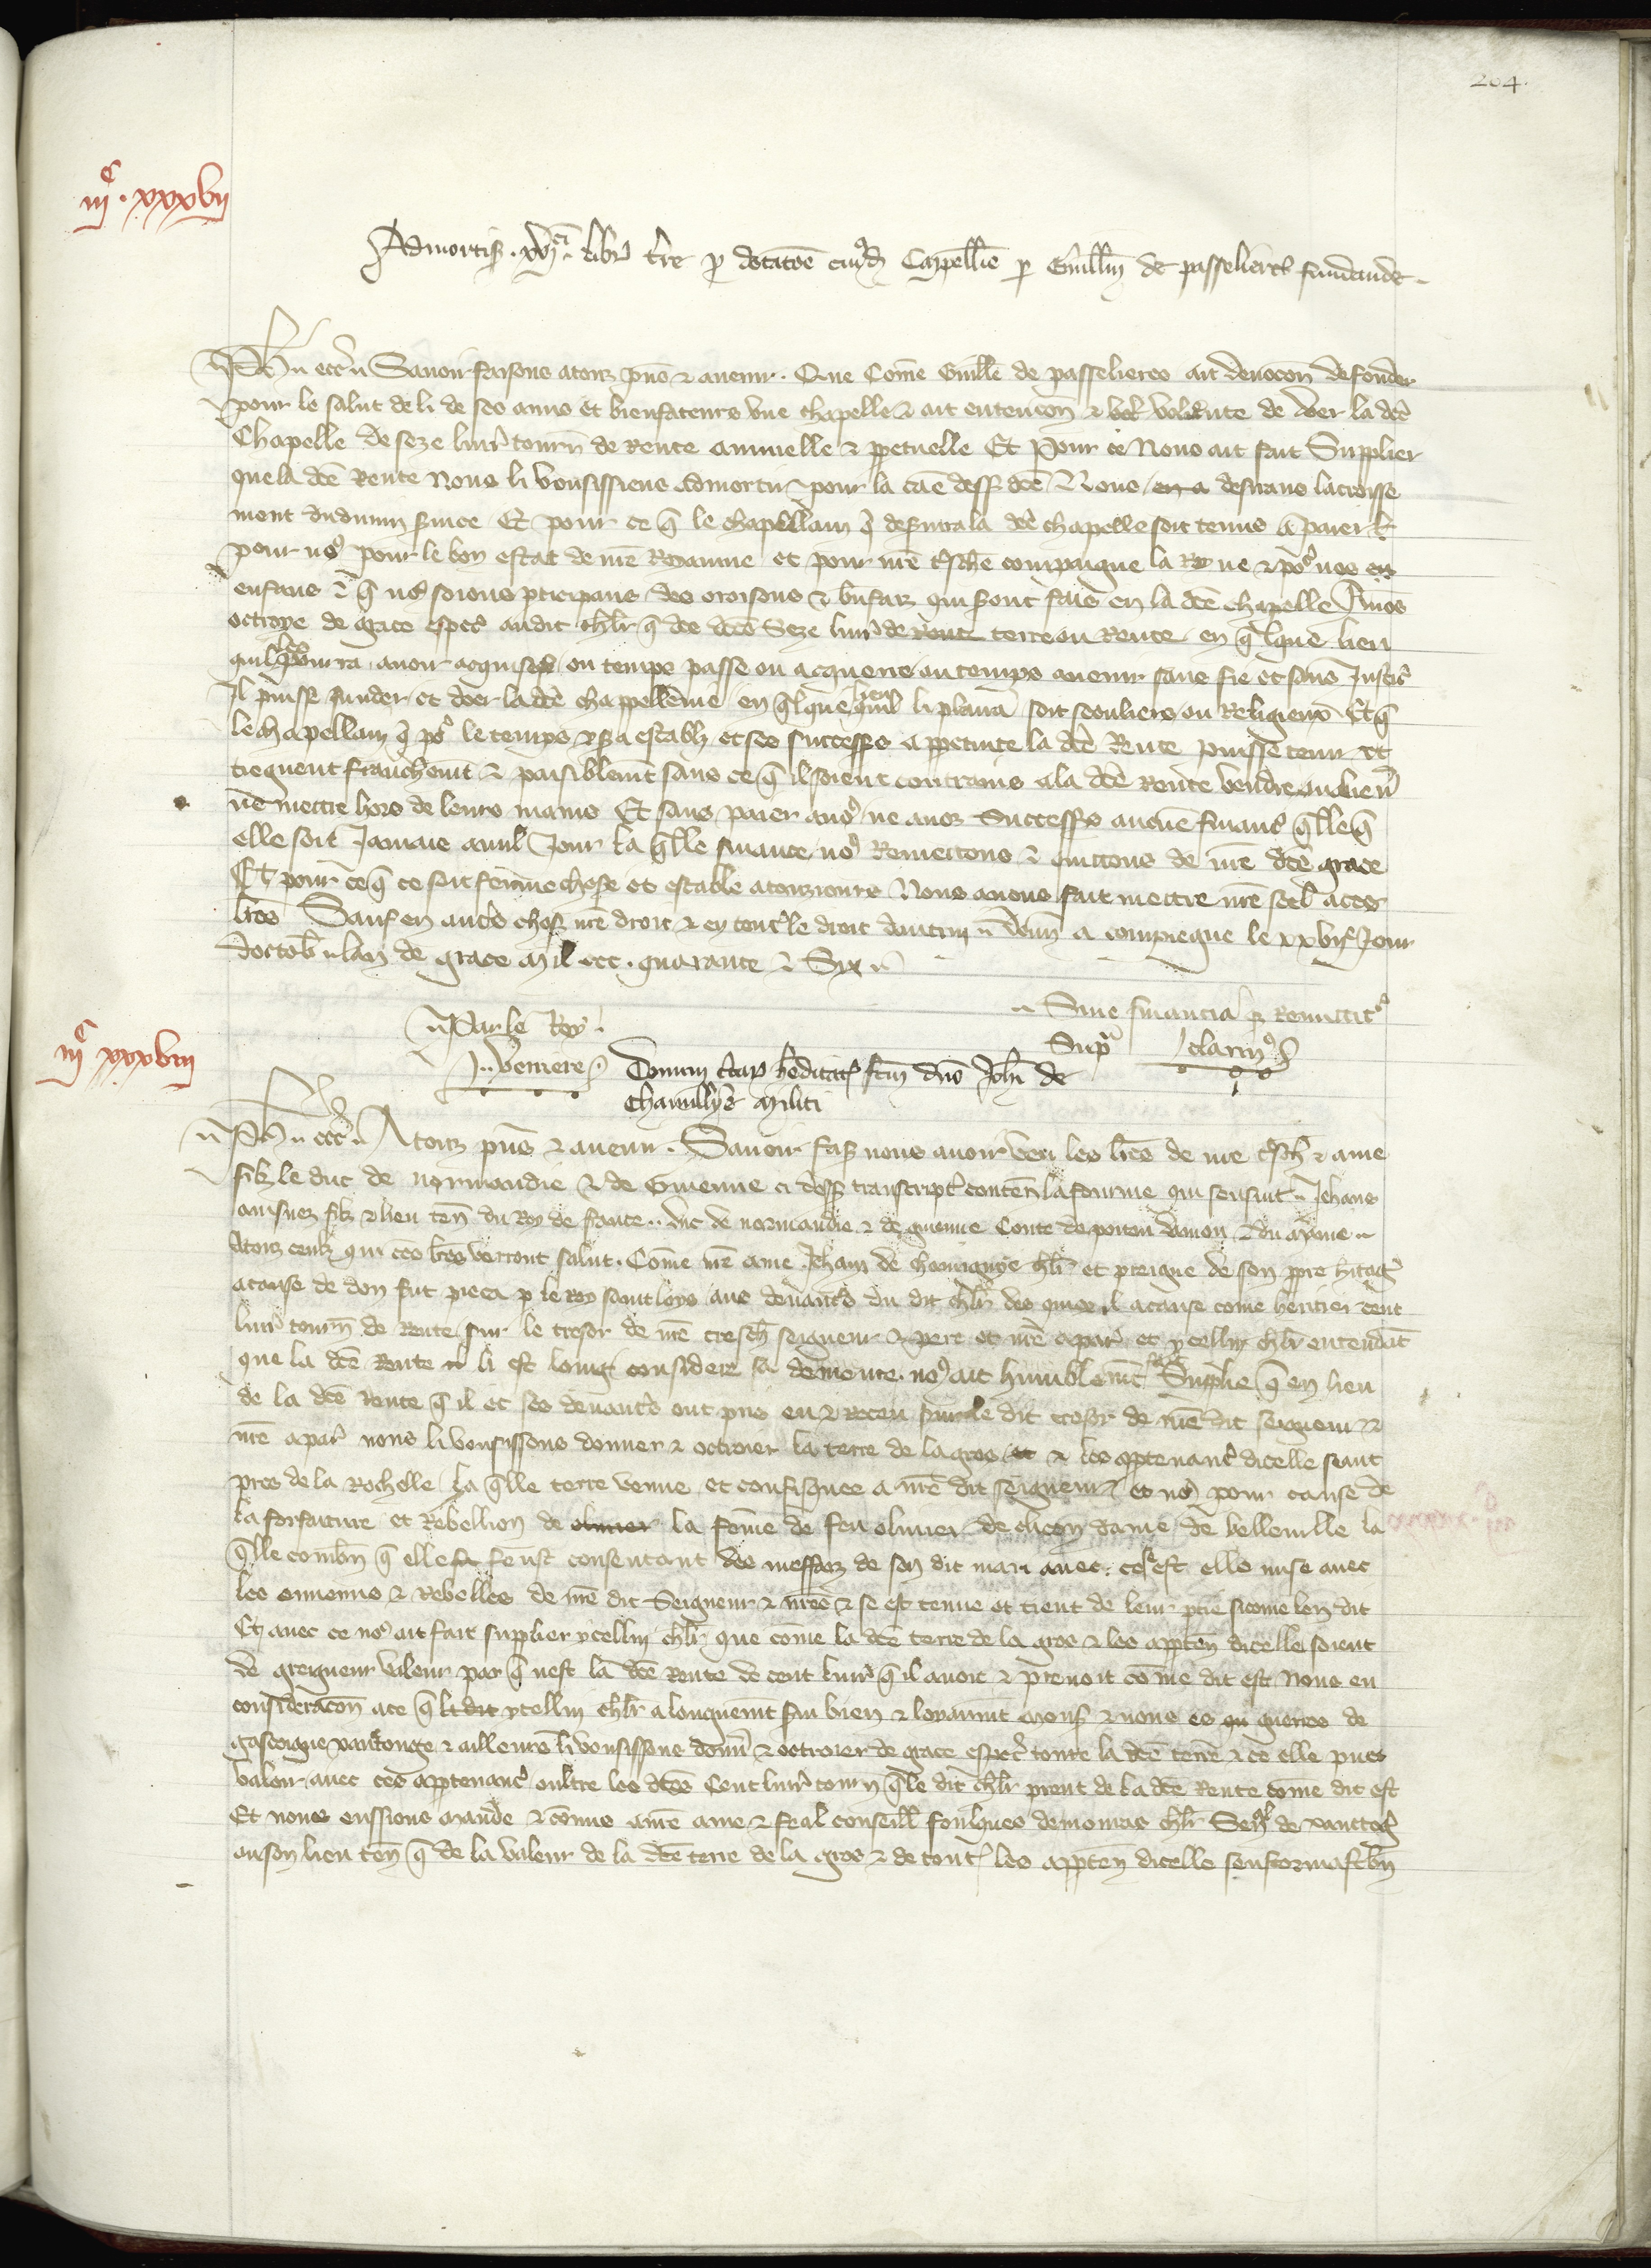 204.
iijᶜ. xxxvij
Admortiᵹ. xvjᶜⁱᵐ libr̃ t̃re ꝑ dotac̃oe cuiꝰdã Capellie ꝑ Guill̃m de passelieres fundande.
Ph̃ etc̃ Sauoir faisons atouz pñs ⁊ auenir. Que Com̃e Guill̃e de passelieres ait deuoc̃on de fonder
pour le salut de li de ses amis et bienfateurs vne chapelle ⁊ ait entenc̃on ⁊ vol volente de doer la dc̃e
Chapelle de seze liur̃ tourñ de Rente annuelle ⁊ ꝑpetuelle Et Pour ce Nous ait fait Supplier
que la dc̃e Rente Nous li vousissiens admortir pour la cãe dess̃ dc̃e Nous en a desirans lacroisse
ment du diuin seruice Et pour ce q̃ le chapellain q̃ deseruira la dc̃e chapelle soit tenus a paier
pour noꝰ pour le bon estat de nr̃e Royaume et pour nr̃e t̃sch̃e compaigne la Royne ⁊ poꝰ nos
enfans ⁊ q̃ noꝰ soions ꝑticipans des oroisons ⁊ bñfaiz qui seront fais en la dc̃e chapelle Auõs
octroye de grace esp̃ẽs audit ch̃lr q̃ dc̃e dc̃es Seze liur̃ de Rent terre ou Rente en q̃lque lieu
quil les pourra auoir acquises ou temps passe ou acquerre ou temps auenir sans fie et sans Justic̃
Il puisse funder et doer la dc̃e chappellenie en q̃lque lieu quil li plaira soit seculiers ou Religieux Et q̃
le chapellain q̃ poꝰ le temps y sera establi et ses successeꝰs a ꝑpetuite la dc̃e Rente puisse tenir et
tiegnent franchem̃t ⁊ paisiblem̃t sans ce q̃ il soient contrains a la dc̃e Rente vendre aucun̄
ne mettre hors de leurs mains Et sans paier a noꝰ ne a noz Successeꝰs aucune financ̃ q̃lle q̃
elle soit Jamais a nul Jour la q̃lle finance noꝰ Remettons ⁊ quittons de nr̃e dc̃e grace
Et pour ce q̃ ce soit ferme chose et estable a touzjours Nous auons fait mettre nr̃e seel a ces
lr̃es Sauf en autr̃s choꝰ nr̃e droit ⁊ en tout le droit dautrui Donñ a compiegne le xxvijᵉ Jour
doctob̃ lan de grace mil ccc. quarante ⁊ Six
Sine financia ꝗ Remittitꝰ
Par le Roy
J. Verriere
Supͣ clarinꝰ
iijᶜ xxxviij
Donum t̃rar̃ h̃editar̃ fc̃m dño Joh̃i de
Chauuigny militi
Ph̃ etc̃ A touz pñs ⁊ auenir. Sauoir faiꝰ nous auoir veu les lr̃es de nr̃e t̃sch̃ ⁊ ame
filz le duc de normandie ⁊ de Guienne ci dess̃ transcript̃ conteñ la fourme qui sensuit Jehans
ainsnez filz ⁊ lieu teñ du Roy de france duc de normandie ⁊ de guienne Conte de poitou daniou ⁊ du maine
A touz ceulz qui ces lr̃es verront salut. Com̃e nr̃e ame Jehan de chauuigny ch̃lr et preigne de son ꝑpre heritaẽ
a cause de don fait pieca ꝑ le Roy saint loys aus deuanciꝰs du dit ch̃lr des quiex il a cause come heritier cent
liur̃ tourñ de Rente sur le tresor de nr̃e tresch̃ seigneur ⁊ pere et nr̃e a paris et ycellui ch̃lr entendãt
que la dc̃e Rente li est loing considere sa demeure noꝰ ait humblem̃t fait Supplie q̃ en lieu
de la dc̃e Rente q̃ il et ses deuanciꝰs ont pris eu ⁊ Receu sur le dit tresor de nr̃e dit seigneur ⁊
nr̃e a paris nous li vousissons donner ⁊ octroier la terre de la gros et ⁊ les apptenanc̃ dicelle seant
pres de la Rochelle la q̃lle terre venue et confisquee a nr̃e dit seigneur ⁊ es noꝰ pour cause de
la forfaiture et Rebellion de oliuier la feme de feu oliuier de clicon dame de belleuille la
q̃lle combñ q̃ elle fa feust consentant des meffaiz de son dit mari auec ce sest elle mise auec
les ennemis ⁊ Rebelles de nr̃e dit Seigneur ⁊ nr̃es ⁊ se est tenue et tient de leur ꝑtie sicome len dit
Et auec ce noꝰ ait fait supplier ycellui ch̃lr que come la dc̃e terre de la gros ⁊ les appteñ dicelle soient
de greigneur valeur par q̃ nest la dc̃e Rente de cent liur̃ q̃ il auoit ⁊ prenoit com̃e dit est Nous en
considerac̃on a ce q̃ le dit ycellui ch̃lr a longuem̃t serui bien ⁊ loyaum̃t monsʳ ⁊ nous es gu guerres de
gascoigne xantonge ⁊ ailleurs li vousissons donñ ⁊ octroier de grace esp̃ec̃ toute la dc̃e terre ⁊ ce elle puet
valoir auec ces apptenanc̃ oultre les dc̃es Cent liur̃ tourñ q̃ le dit ch̃lr prent de la dc̃e Rente come dit est
Et nous eussions mande ⁊ cõmis a nr̃e ame ⁊ feal conseill̃ foulques de moutas ch̃lr Sen̄ᵃˡ de xanctoge
ou son lieu teñ q̃ de la valeur de la dc̃e terre de la gros ⁊ de tout̃ les appteñ dicelle senformast bñ